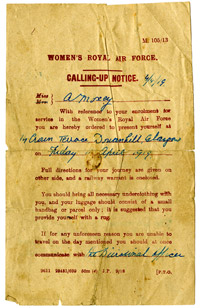 M 105/13
WOMEN'S ROYAL AIR FORCE.
CALLING-UP NOTICE.
Miss
Mrs
With reference to your enrolment for
service in the Women's Royal Air Force
you are hereby ordered to present yourself at
Terrace Dowanhill Glasgow
on Friday April 1919.
Full directions for your journey are given on
other side, and a railway warrant is enclosed.
You should bring all necessary underclothing with
you, and your luggage should consist of a small
handbag or parcel only; it is suggested that you
provide yourself with a rug.
If for any unforeseen reason you are unable to
travel on the day mentioned you should at once
communicate with the Divisional Officer
[P.T.O.